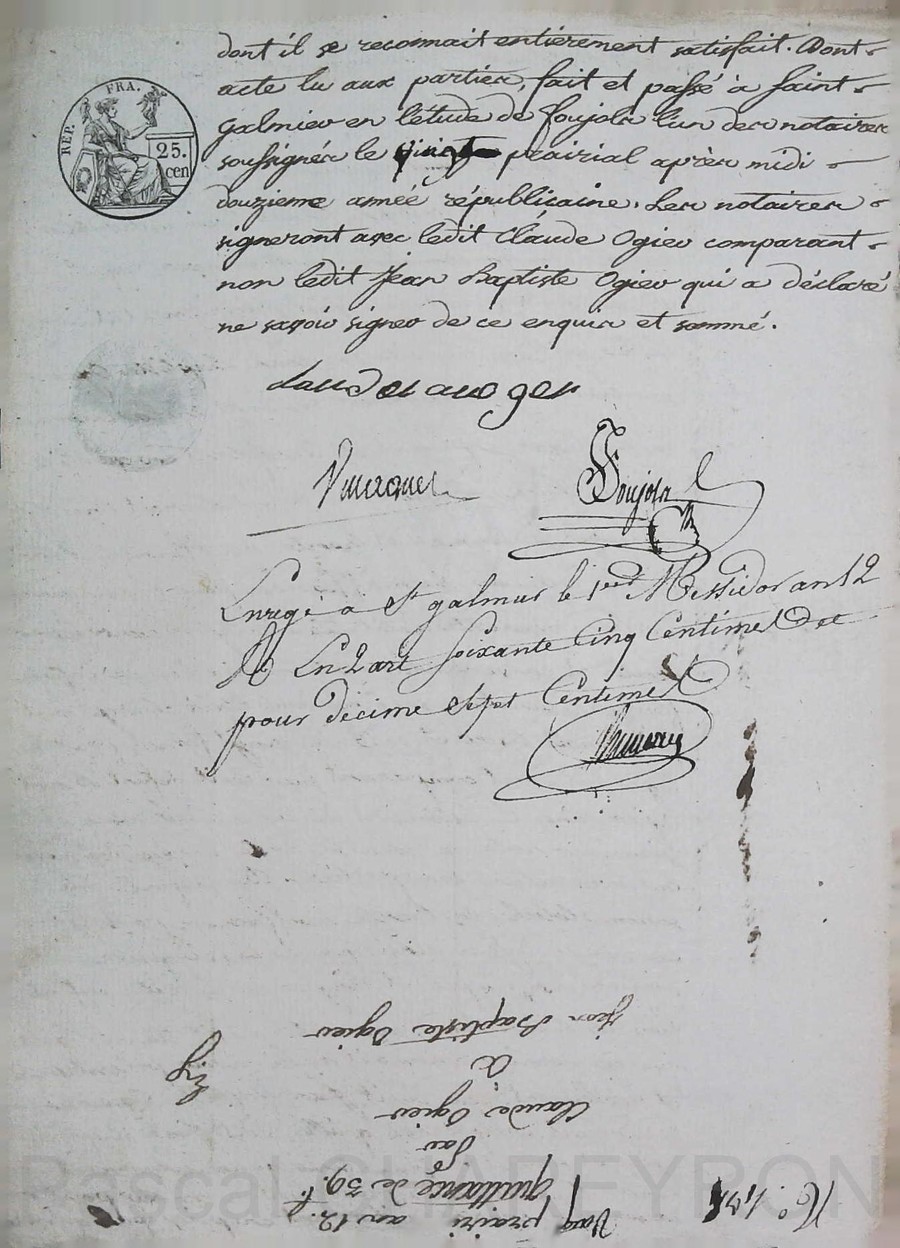 REP. FRA.
25.
cen
dont il se reconnait entièrement satisfait. Dont
acte lu aux parties, fait et passé à Saint
galmier en l'étude de foujols l'un des notaires
soussignés le vingt prairial après midi
douzieme année républicaine. Les notaires
signeront avec ledit Claude Ogier comparant
non ledit Jean Baptiste Ogier qui a déclaré
ne savoir signer de ce enquis et sommé.
Foujols
Enregé a St galmier le 1er Messidor an 12
Soixante Cinq Centimes et
pour decime Sept Centimes
Jean Baptiste Ogier
à
Claude Ogier
Par
quittance de 39.f.
prairi an 12.
Pascal CHAREYRON